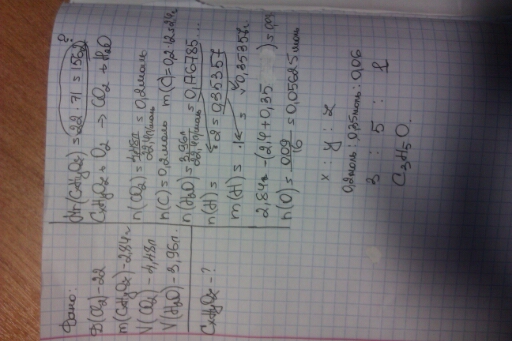 Дано:
D(Cl2)-22
m(CxHyOz)-2,84г
V(CO2)-4,48л
V(H2O)-3,96л.
CxHyOz-?
Mr(CxHyOz)=22·71=1562 ?
CxHyOz+O2 → CO2+H2O
n(CO2)=4,48л/22,4л/моль=0,2моль
n(C)=0,2моль m(C)=0,2·12=2,4г
n(H2O)=3,96л/22,4л/моль=0,176785...
n(H)= ·2=0,35357
m(H)= ·1г= 0,35357г
2,84г-(2,4+0,35)=0,09
n(O)=0,09/16=0,05625моль
x : y : z
0,2моль:0,35моль:0,06
3 : 5 : 1
C3H5O.